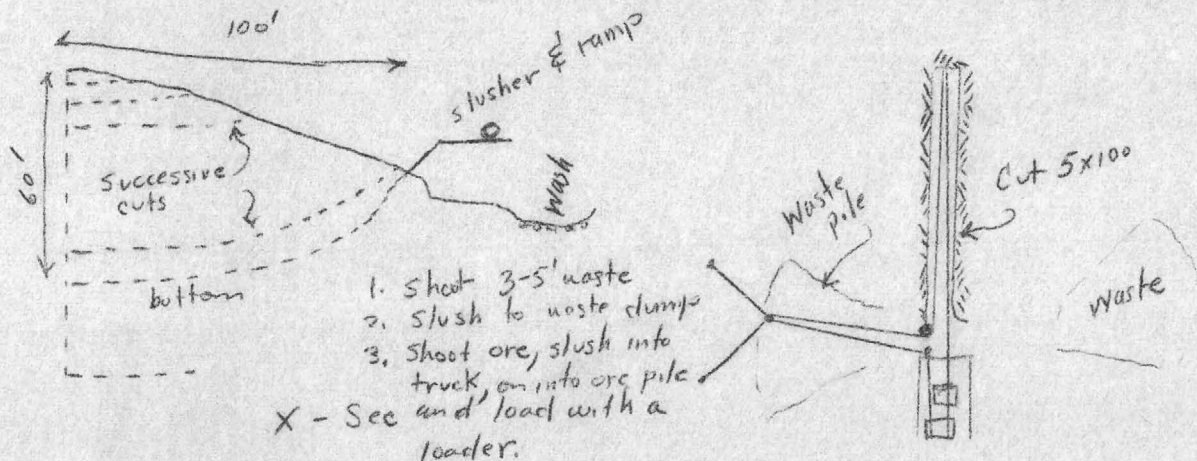 100'
slusher & ramp
60'
Successive
cuts
Wash
bottom
1. Shoot 3-5' waste
2. Slush to waste dump
3. Shoot ore, slush into
truck, or into ore pile
X - See and load with a
loader.
Waste
pile
Cut 5x100
Waste